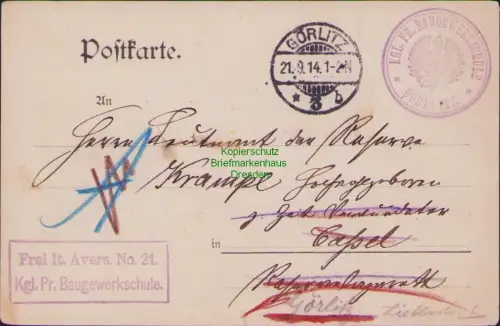 Postkarte.
GÖRLITZ
21.9.14.1-2N
* 3 b
KGL. PR. BAUGEWERKSCHULE
GÖRLITZ
An
Herrn Leutnant der Reserve
Krampe Hochwohlgeboren
z Zeit Verwundeter
in Cassel
Reservelazarett
Görlitz
Kopierschutz
Briefmarkenhaus
Dresden
Frei lt. Avers. No. 21.
Kgl. Pr. Baugewerkschule.